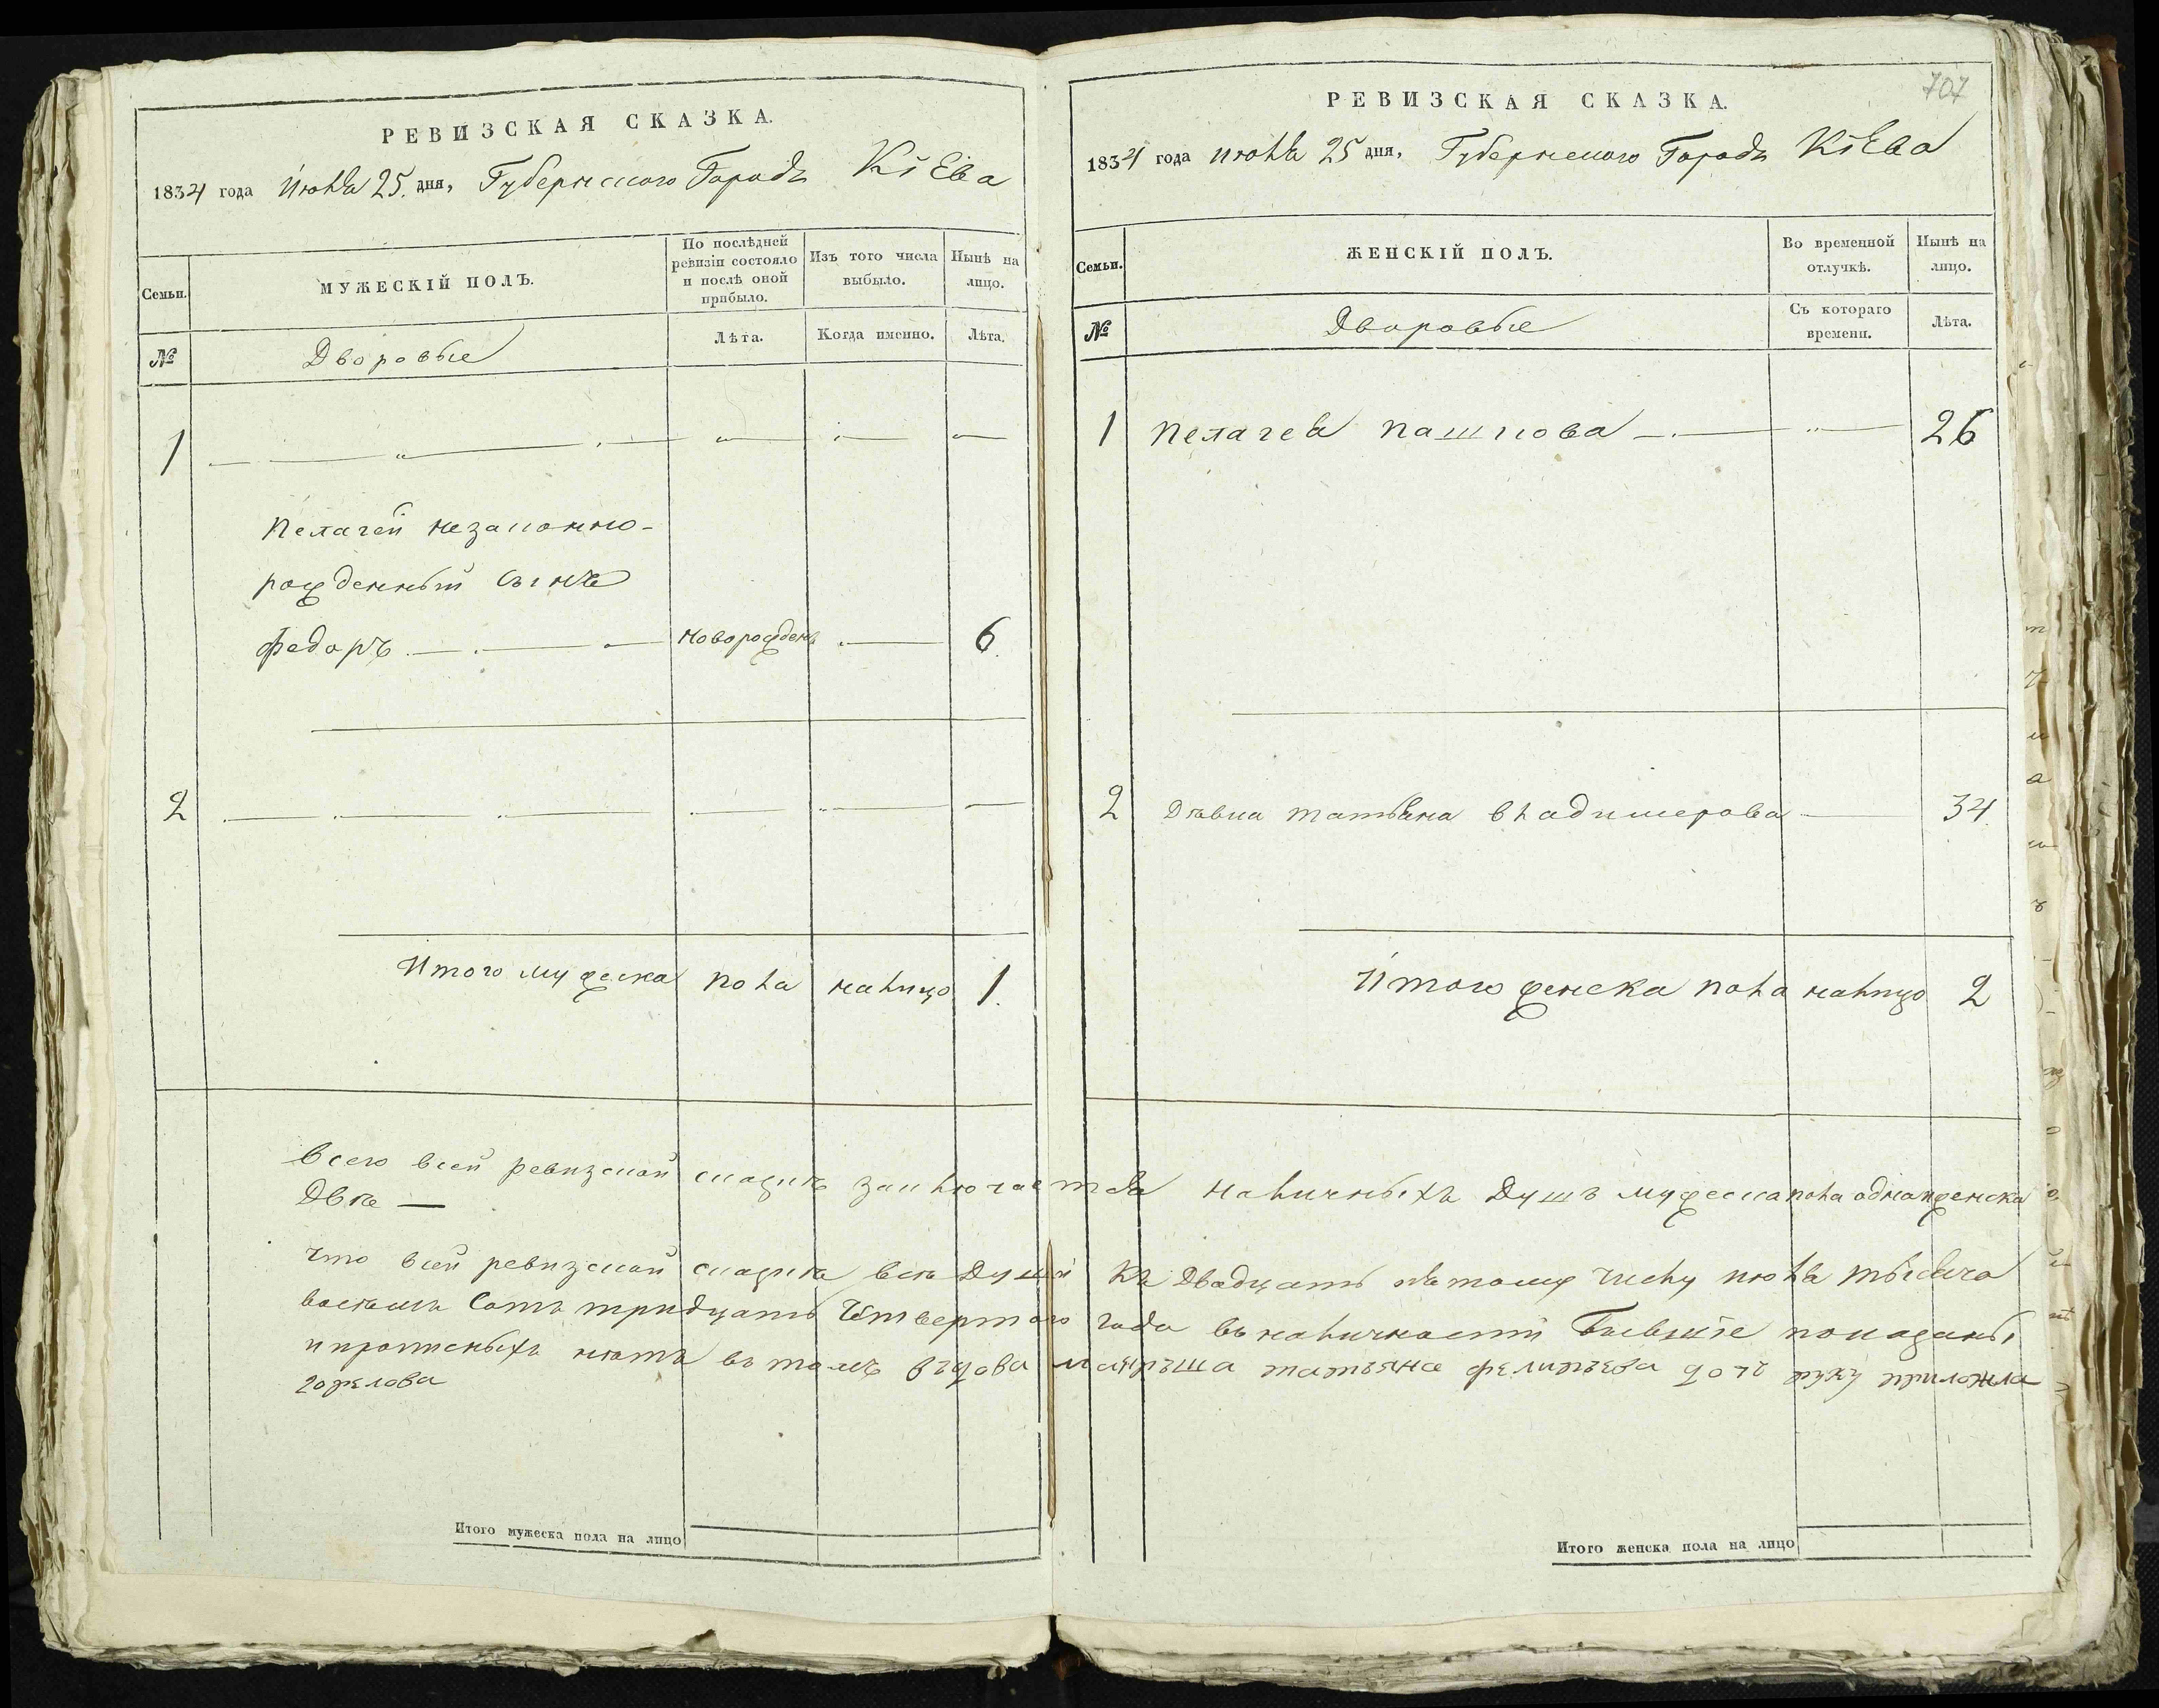 РЕВИЗСКАЯ СКАЗКА.
1834 года Июня 25. дня, Губернского Городъ КіЕва
Семьи.
МУЖЕСКІЙ ПОЛЪ.
По послѣдней ревизіи состояло и послѣ оной прибыло.
Изъ того числа выбыло.
Нынѣ на лицо.
№
Дворовые
Лѣта.
Когда именно.
Лѣта.
1
Пелагеи незаконно-
рожденный сынъ
Федоръ новорожденъ 6.
2
Итого мужеска пола налицо 1.
РЕВИЗСКАЯ СКАЗКА.
707
1834 года июня 25 дня, Губернского Городъ КіЕва
Семьи.
ЖЕНСКІЙ ПОЛЪ.
Во временной отлучкѣ.
Нынѣ на лицо.
№
Дворовые
Съ котораго времени.
Лѣта.
1 Пелагея Пашкова 26
2 Дѣвка татьяна владимерова 34
Итого женска пола налицо 2
Всего всей ревизской сказкѣ заключается наличныхъ душъ мужеска пола одна женска
Двѣ —
что всей ревизской сказкѣ всѣ Души Къ Двадцать пятому числу июля тысяча
восемь Сотъ тридцать Четвертого года въ наличности Бывшіе показаны
и прописныхъ нѣтъ въ томъ въдова татьяна филипьева дочь руку приложла
горелова
Итого мужеска пола на лицо
Итого женска пола на лицо